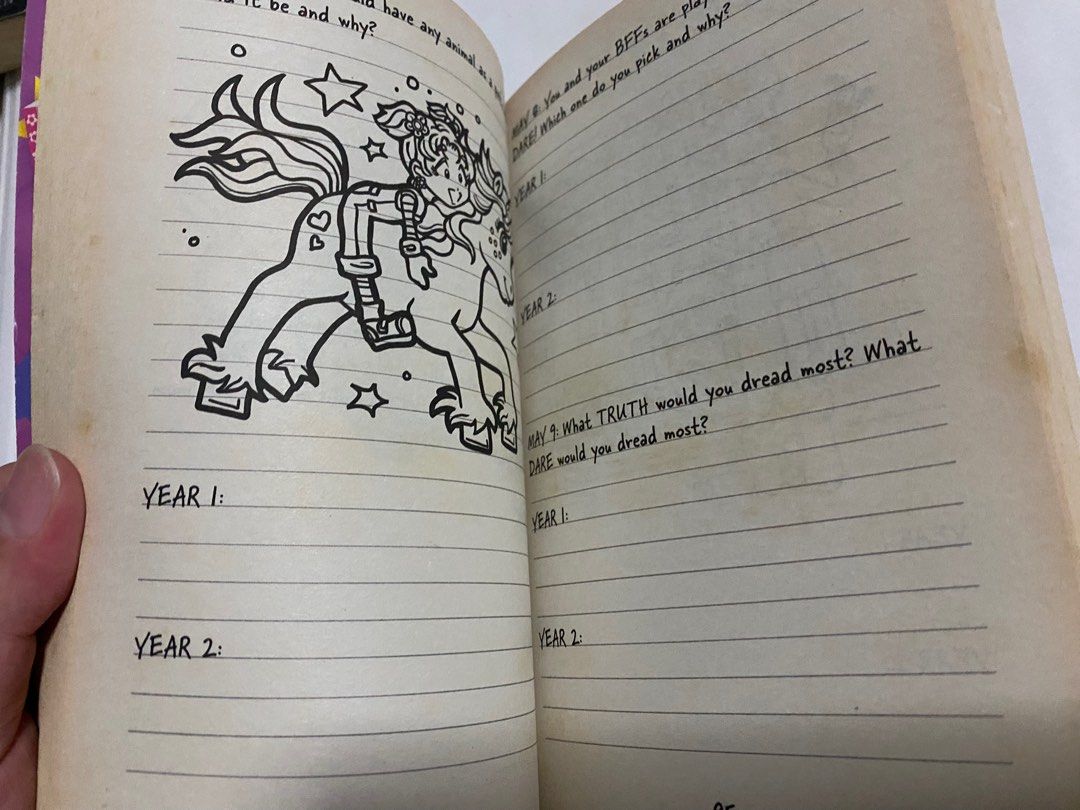 have any animal as a
it be and why?
YEAR 1:
YEAR 2:
MAY 8: You and your BFFs are play
DARE! Which one do you pick and why?
YEAR 1:
YEAR 2:
MAY 9: What TRUTH would you dread most? What
DARE would you dread most?
YEAR 1:
YEAR 2: